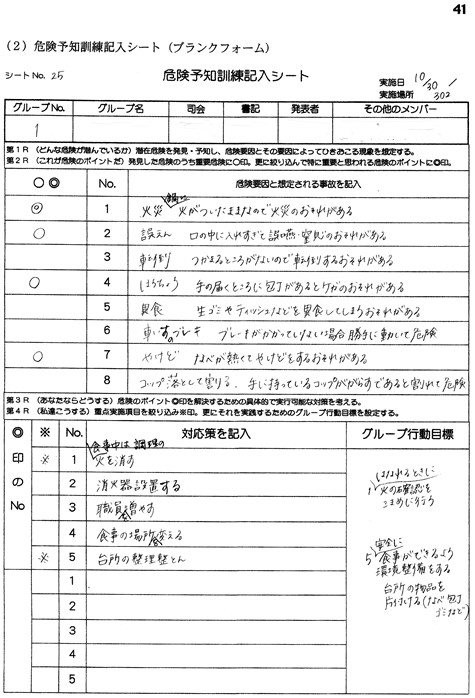 41
(2) 危険予知訓練記入シート (ブランクフォーム)
シートNo. 25 危険予知訓練記入シート 実施日 10/30/
実施場所 302
グループNo. グループ名 司会 書記 発表者 その他のメンバー
1
第1R (どんな危険が潜んでいるか) 潜在危険を発見・予知し、危険要因とその要因によってひきおこる現象を想定する。
第2R (これが危険のポイントだ) 発見した危険のうち重要危険に○印。更に絞り込んで特に重要と思われる危険のポイントに◎印。
○ ◎ No. 危険要因と想定される事故を記入
◎ 1 火災 火がついたままなので火災のおそれがある
○ 2 誤えん 口の中に入れすぎて誤嚥・窒息のおそれがある
3 転倒 つかまるところがないので転倒するおそれがある
○ 4 ほうちょう 手の届くところに包丁があるとケガのおそれがある
5 異食 生ゴミやティッシュなどを異食してしまうおそれがある
6 車いすのブレーキ ブレーキがかかっていない場合勝手に動いて危険
○ 7 やけど なべが熱くてやけどをするおそれがある
8 コップ落として割る、手に持っているコップががらすであると割れて危険
第3R (あなたならどうする) 危険のポイント◎印を解決するための具体的で実行可能な対策を考える。
第4R (私達こうする) 重点実施項目を絞り込み※印。更にそれを実践するためのグループ行動目標を設定する。
◎印のNo ※ No. 対応策を記入 グループ行動目標
食事中は調理の
※ 1 火を消す
2 消火器設置する
3 職員を増やす
4 食事の場所を変える
※ 5 台所の整理整とん
1
2
3
4
5
はなれるときに
1 火の確認を
こまめに行う
安全に
5 食事ができるよう
環境整備をする
台所の物品を
片付ける(なべ包丁
ゴミなど)